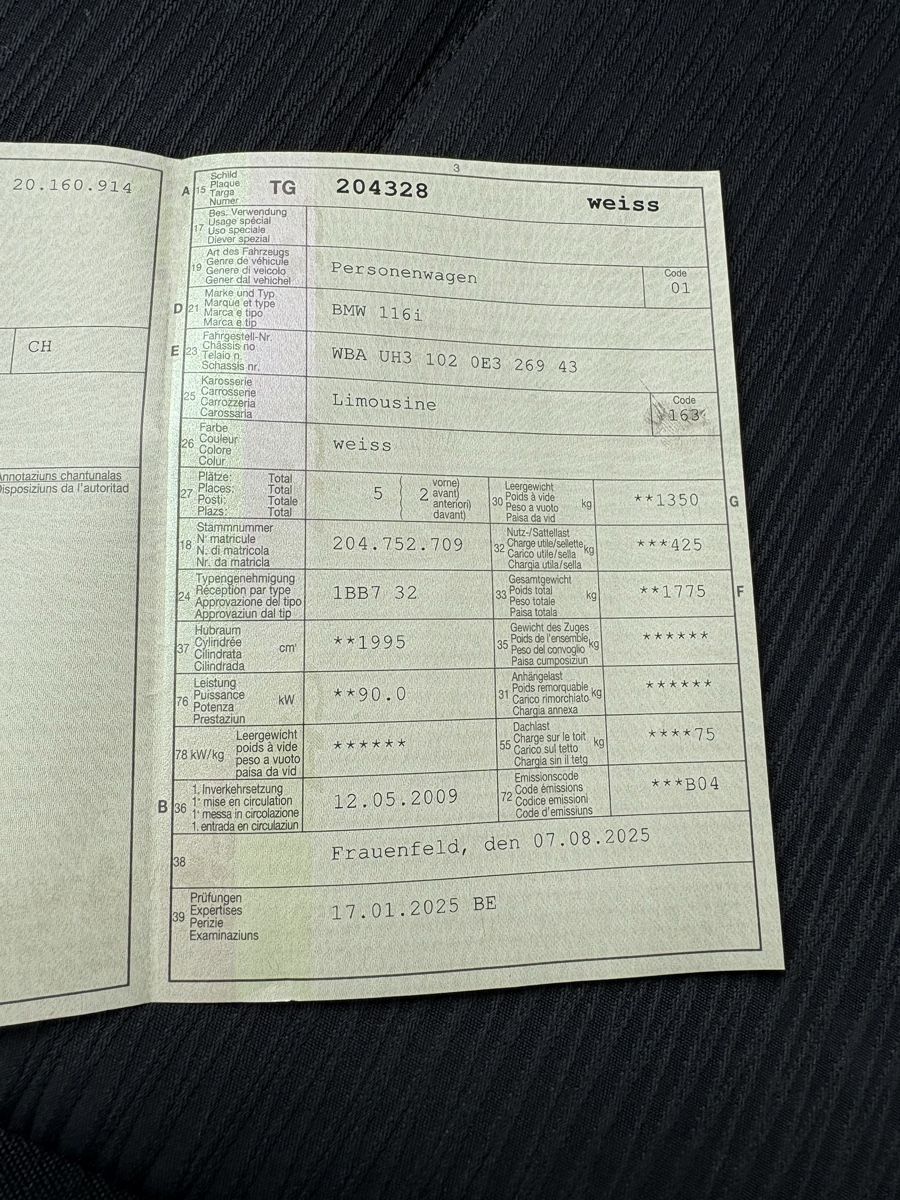 20.160.914
CH
Annotaziuns chantunalas
Disposiziuns da l'autoritad
3
A 15 Schild
Plaque
Targa
Numer
TG 204328 weiss
17 Bes. Verwendung
Usage spécial
Uso speciale
Diever spezial
19 Art des Fahrzeugs
Genre de véhicule
Genere di veicolo
Gener dal vehichel
Personenwagen
Code
01
D 21 Marke und Typ
Marque et type
Marca e tipo
Marca e tip
BMW 116i
E 23 Fahrgestell-Nr.
Châssis no
Telaio n.
Schassis nr.
WBA UH3 102 0E3 269 43
25 Karosserie
Carrosserie
Carrozzeria
Carossaria
Limousine
Code
163
26 Farbe
Couleur
Colore
Colur
weiss
27 Plätze: Total
Places: Total
Posti: Totale
Plazs: Total
5 ( 2 vorne)
avant)
anteriori)
davant)
30 Leergewicht
Poids à vide
Peso a vuoto
Paisa da vid
kg
**1350
G
18 Stammnummer
N° matricule
N. di matricola
Nr. da matricla
204.752.709
32 Nutz-/Sattellast
Charge utile/sellette
Carico utile/sella
Chargia utila/sella
kg
***425
24 Typengenehmigung
Réception par type
Approvazione del tipo
Approvaziun dal tip
1BB7 32
33 Gesamtgewicht
Poids total
Peso totale
Paisa totala
kg
**1775
F
37 Hubraum
Cylindrée
Cilindrata
Cilindrada
cm³
**1995
35 Gewicht des Zuges
Poids de l'ensemble
Peso del convoglio
Paisa cumposiziun
kg
******
76 Leistung
Puissance
Potenza
Prestaziun
kW
**90.0
31 Anhängelast
Poids remorquable
Carico rimorchiato
Chargia annexa
kg
******
78 kW/kg Leergewicht
poids à vide
peso a vuoto
paisa da vid
******
55 Dachlast
Charge sur le toit
Carico sul tetto
Chargia sin il tetg
kg
****75
B 36 1. Inverkehrsetzung
1re mise en circulation
1a messa in circolazione
1. entrada en circulaziun
12.05.2009
72 Emissionscode
Code émissions
Codice emissioni
Code d'emissiuns
***B04
38 Frauenfeld, den 07.08.2025
39 Prüfungen
Expertises
Perizie
Examinaziuns
17.01.2025 BE